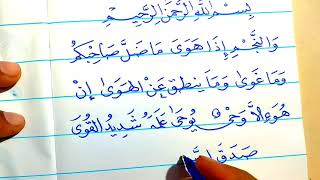 بِسْمِ اللّٰهِ الرَّحْمٰنِ الرَّحِيْمِ
وَالنَّجْمِ إِذَا هَوَىٰ مَا ضَلَّ صَاحِبُكُمْ
وَمَا غَوَىٰ وَمَا يَنْطِقُ عَنِ الْهَوَىٰ إِنْ
هُوَ إِلَّا وَحْيٌ يُوحَىٰ عَلَّمَهُ شَدِيدُ الْقُوَىٰ
صَدَقَ